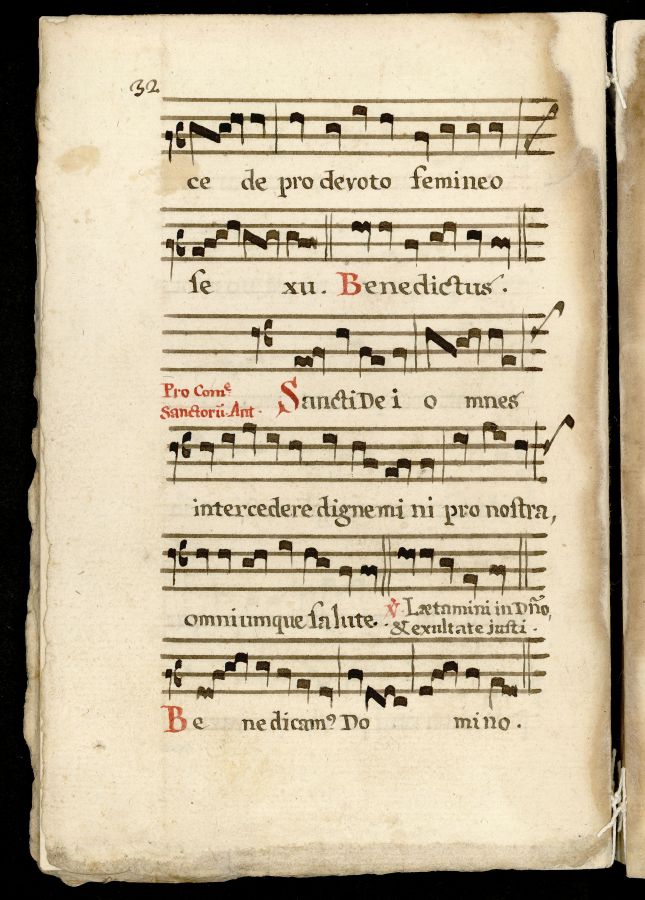 32
ce de pro devoto femineo
se xu. Benedictus.
Pro Com̃e
Sanctorũ. Ant.
Sancti De i o mnes
intercedere dignemi ni pro nostra,
omniumque salute.
℣. Lætamini in Dño,
& exultate justi.
Be ne dicamꝰ Do mino.